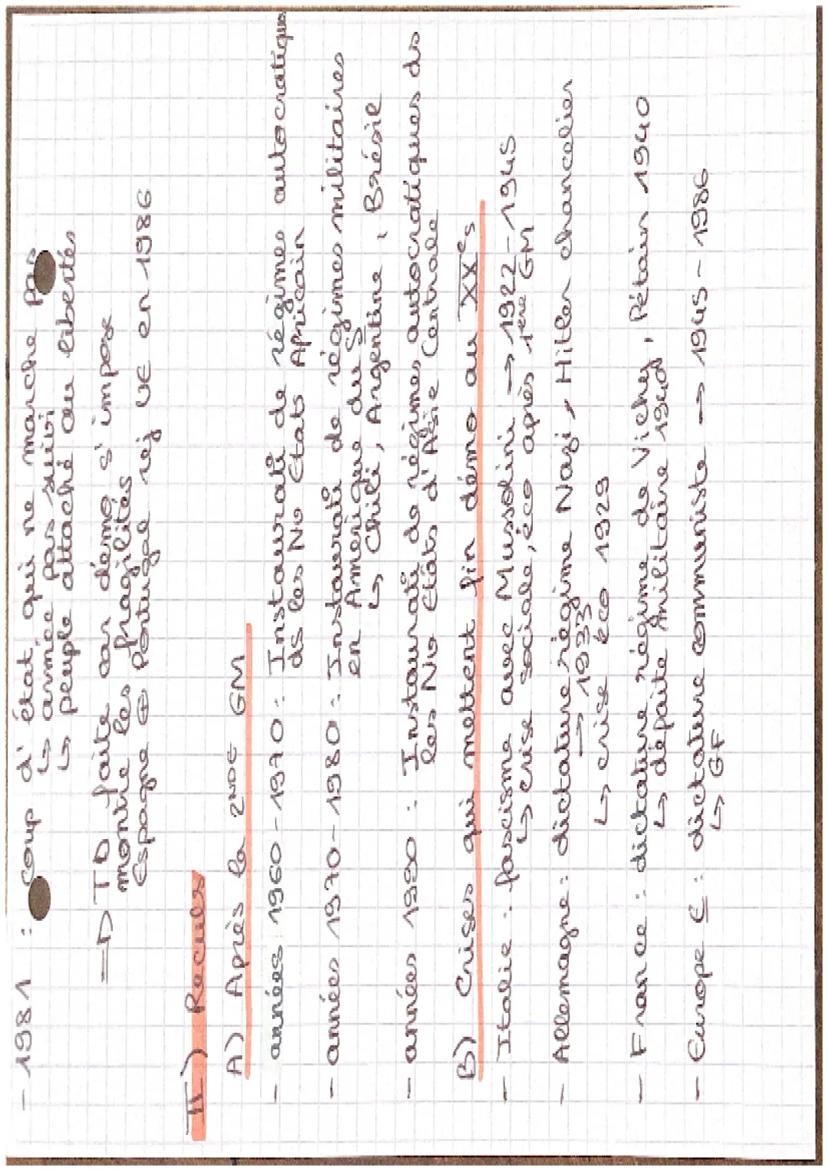 - 1981 : coup d'état qui ne marche pas
↳ armée pas suivi
↳ peuple attaché au libertés
=> TD faite car démo s'impose
montre les fragilités
Espagne ⊕ Portugal rej UE en 1986
II) Reculs
A) Après la 2NDE GM
- années 1960-1970 : Instaurat° de régimes autocratique
ds les Nv Etats Africain
- années 1970-1980 : Instaurat° de régimes militaires
en Amérique du S
↳ Chili, Argentine, Brésil
- années 1990 : Instaurat° de régimes autocratiques ds
les Nv Etats d'Asie Centrale
B) Crises qui mettent fin démo au XXes
- Italie : fascisme avec Mussolini → 1922-1945
↳ crise sociale, éco après 1ère GM
- Allemagne : dictature régime Nazi, Hitler chancelier
→ 1933
↳ crise éco 1929
- France : dictature régime de Vichy, Pétain 1940
↳ défaite militaire 1940
- Europe E : dictature communiste → 1945-1986
↳ GF